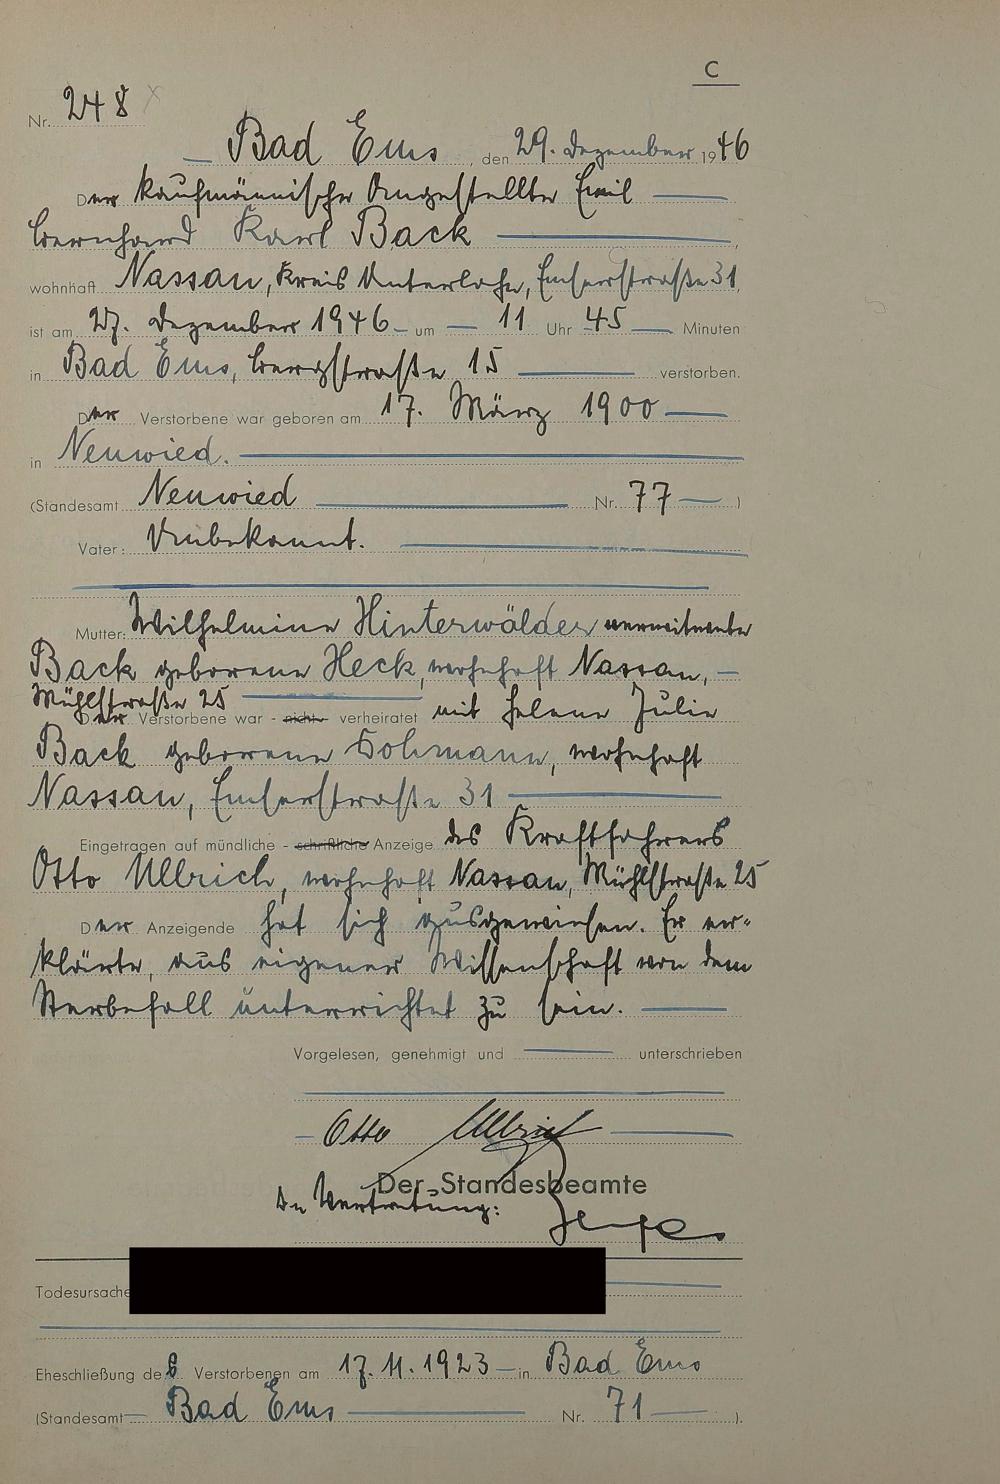 C
Nr. 248
Bad Ems, den 29. Dezember 1946
Der kaufmännische Angestellte Emil
Bernhard Karl Back
wohnhaft Nassau, Kreis Unterlahn, Emserstraße 31,
ist am 27. Dezember 1946 um 11 Uhr 45 Minuten
in Bad Ems, Bergstraße 15 verstorben.
Der Verstorbene war geboren am 17. März 1900
in Neuwied.
(Standesamt Neuwied Nr. 77)
Vater: Unbekannt.
Mutter: Wilhelmine Hinterwälder verwitwete
Back geborene Heck, wohnhaft Nassau,
Mühlstraße 25
Der Verstorbene war - nicht - verheiratet mit Helene Julie
Back geborene Hohmann, wohnhaft
Nassau, Emserstraße 31
Eingetragen auf mündliche - schriftliche Anzeige des Kraftfahrers
Otto Ullrich, wohnhaft Nassau, Mühlstraße 25
Der Anzeigende hat sich ausgewiesen. Er er-
klärte, aus eigener Wissenschaft von dem
Sterbefall unterrichtet zu sein.
Vorgelesen, genehmigt und unterschrieben
Otto Ullrich
Der Standesbeamte
In Vertretung:
Todesursache
Eheschließung des Verstorbenen am 17.11.1923 in Bad Ems
(Standesamt Bad Ems Nr. 71).